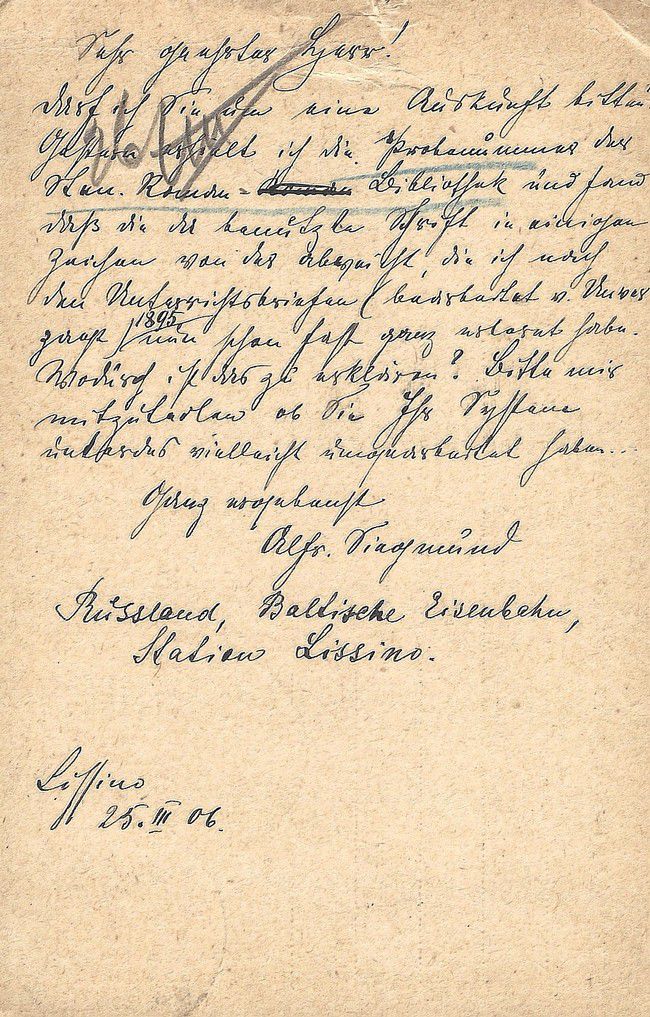 Sehr geehrter Herr!
Darf ich Sie um eine Auskunft bitten?
Gestern erhielt ich die Probenummer der
Sten. Roman- Bibliothek und fand
daß die da benutzte Schrift in einigen
Zeichen von der abweicht, die ich nach
den Unterrichtsbriefen (bearbeitet v. Unver
zagt) 1895 nun schon fast ganz erlernt habe.
Wodurch ist das zu erklären? Bitte mir
mitzuteilen ob Sie Ihr System
unterdes vielleicht umgearbeitet haben...
Ganz ergebenst
Alfr. Siegmund
Russland, Baltische Eisenbahn,
Station Lissino.
Lissino
25. III 06.